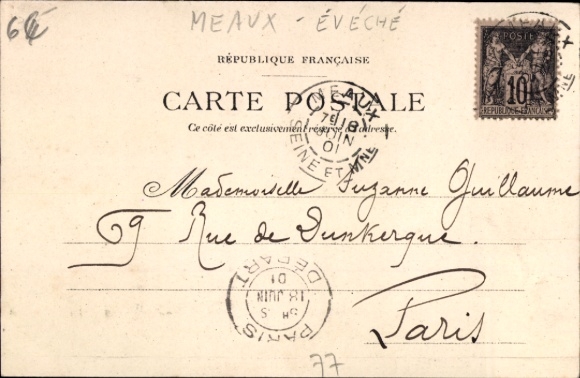 6€
MEAUX - ÉVÊCHÉ
RÉPUBLIQUE FRANÇAISE
POSTE
10
RÉPUBLIQUE FRANÇAISE
CARTE POSTALE
Ce côté est exclusivement réservé à l'adresse.
MEAUX
7E 18
JUIN
01
SEINE ET MNE
Mademoiselle Suzanne Guillaume
69 Rue de Dunkerque.
Paris
PARIS
5H S
18 JUIN
01
DÉPART
77